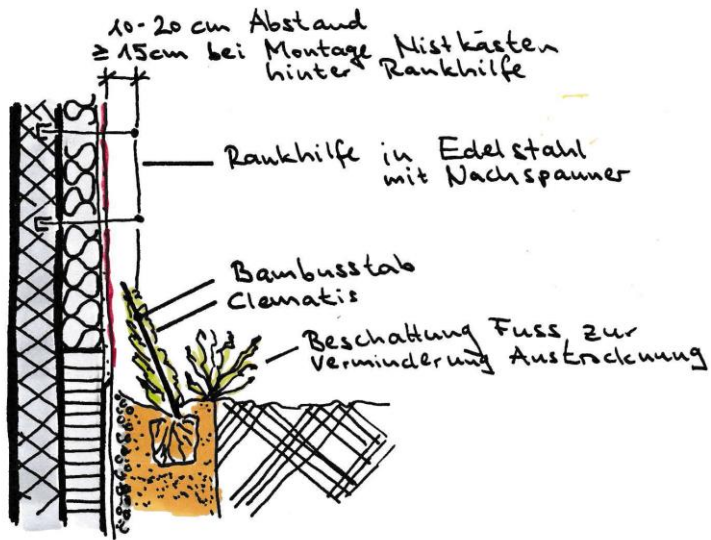 10-20 cm Abstand
≥ 15cm bei Montage Nistkästen
hinter Rankhilfe
Rankhilfe in Edelstahl
mit Nachspanner
Bambusstab
Clematis
Beschattung Fuss zur
Verminderung Austrocknung